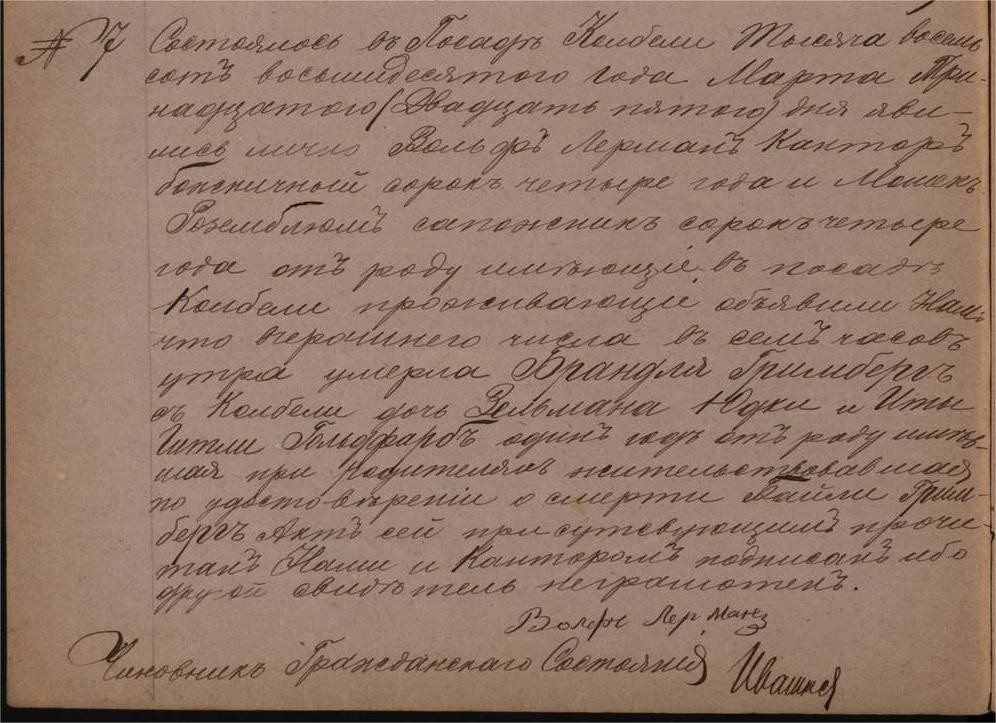 № 7 Состоялось въ Посадѣ Колбели Тысяча восемь
сотъ восьмидесятого года Марта Три-
надцатого (Двадцать пятого) дня яви-
лись лично Вольфъ Лерманъ Канторъ
божничный сорокъ четыре года и Мошекъ
Роземблюмъ сапожникъ сорокъ четыре
года отъ роду имѣющіе въ посадѣ
Колбели проживающіе объявили Намъ
что вчерашнего числа въ семъ часовъ
утра умерла Брандля Гримбергъ
съ Колбели дочь Зельмана Юдки и Иты
Гитли Гольдфарбъ одинъ годъ отъ роду имѣв-
шая при родителяхъ жительствовавшая
по удостовѣреніи о смерти Байли Грим-
бергъ Актъ сей присутсвующимъ прочи-
танъ Нами и Канторомъ подписанъ ибо
другой свидѣтель неграмотенъ.
Вольфъ Лерманъ
Чиновникъ Гражданскаго Состоянія